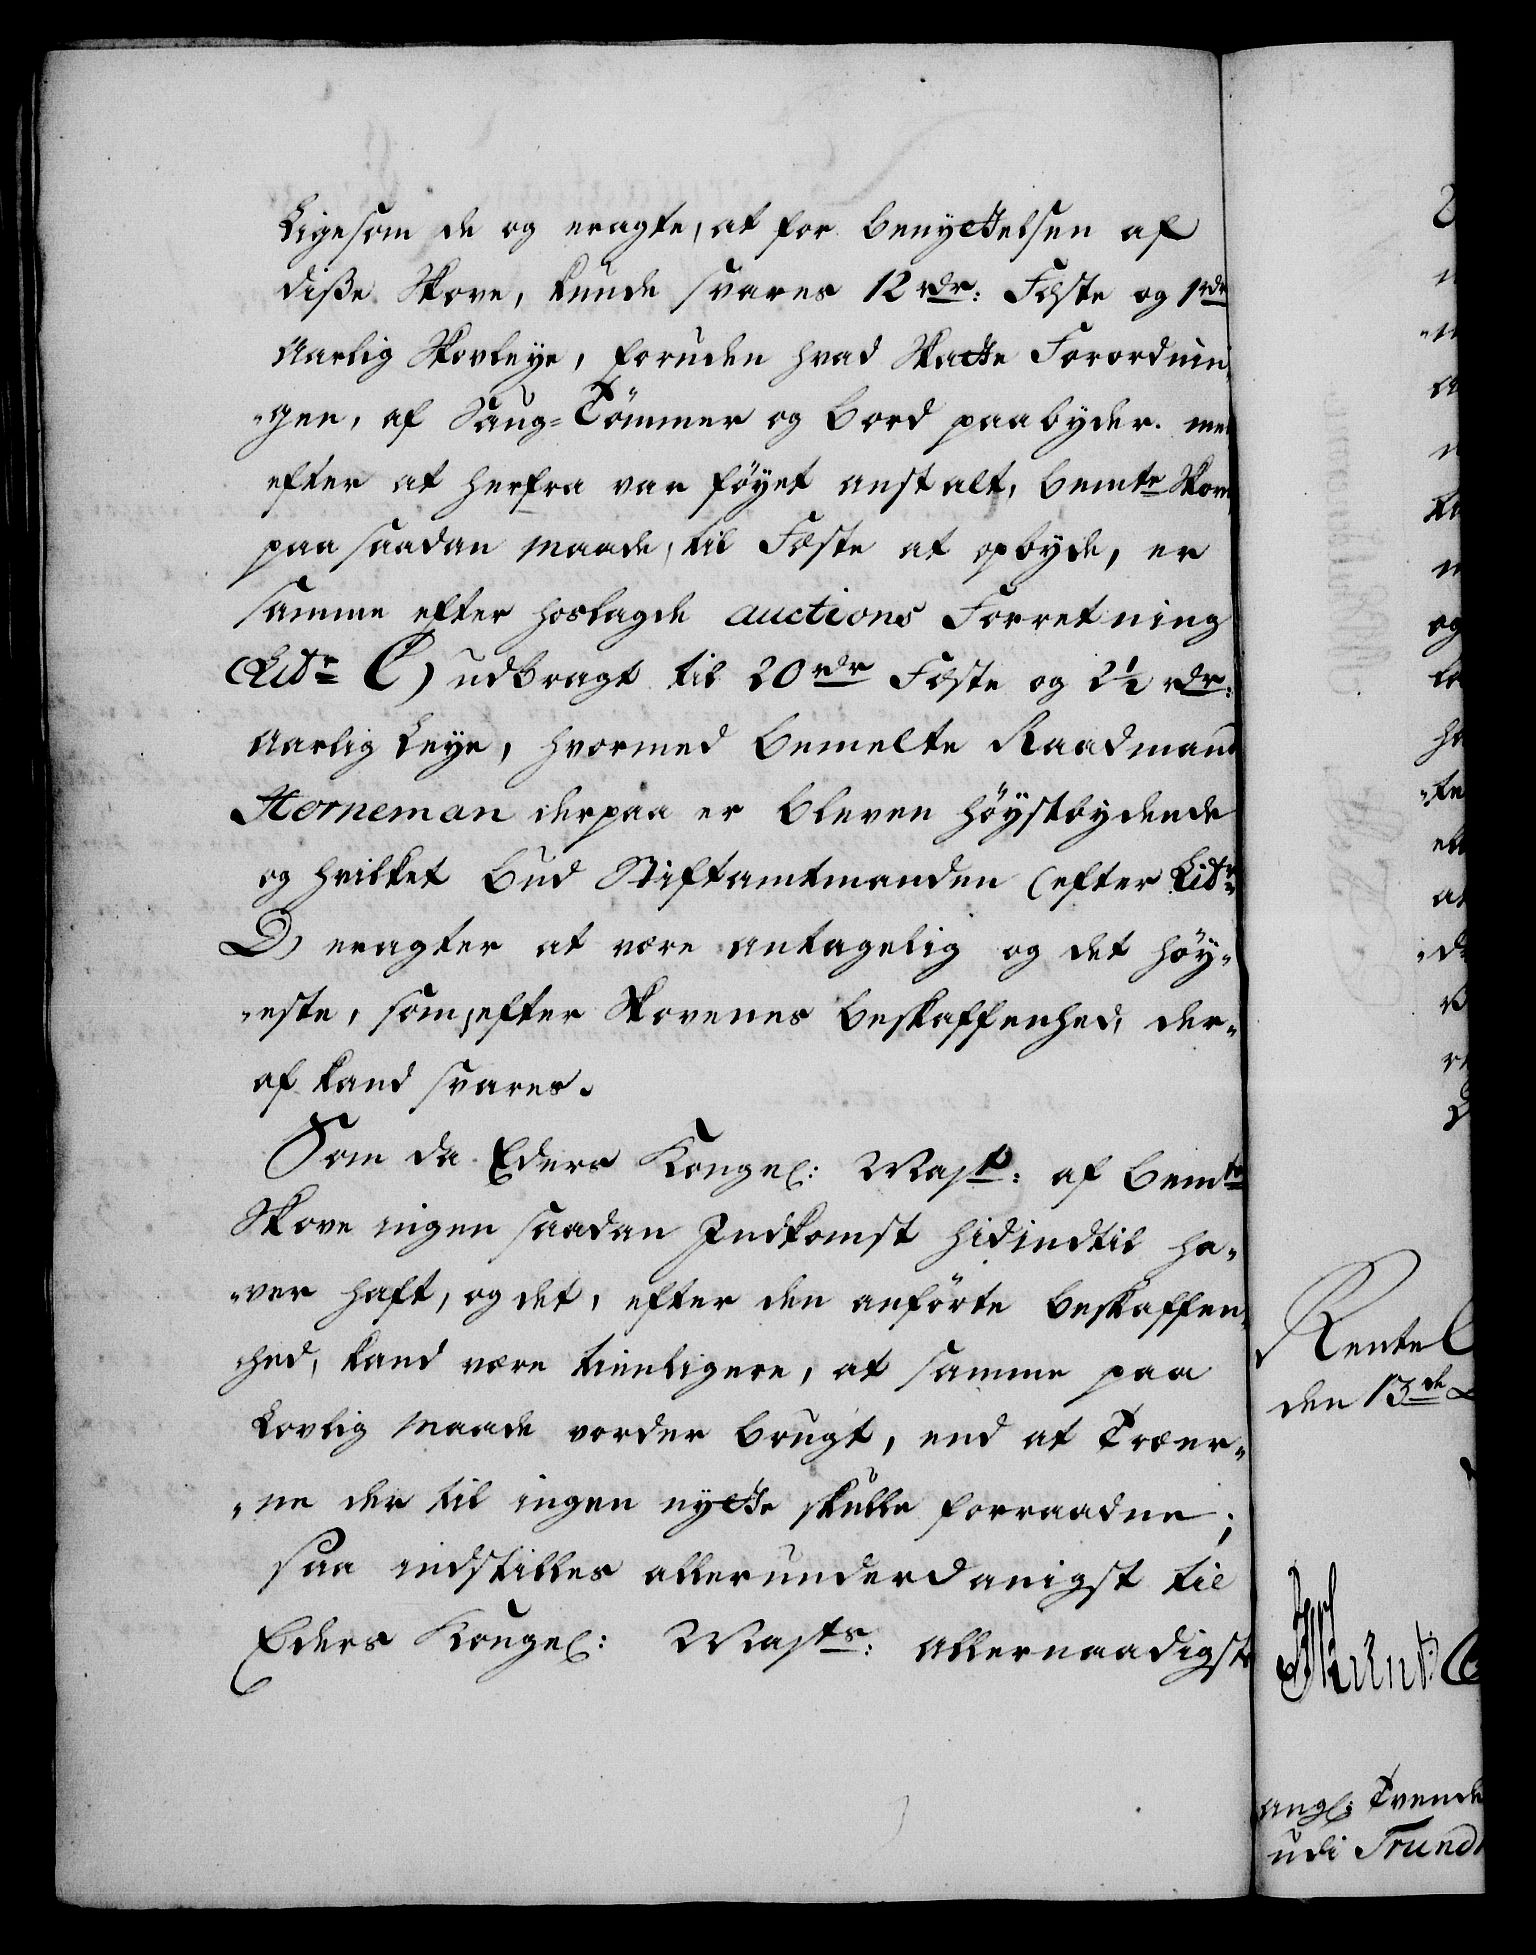 Ligesom de og eragte, at for benyttelsen af
disse Skove, kunde svares 12 rdr: Fæste og 1 rdr
Aarlig Skovleye, foruden hvad Skatte Forordnin,
"gen, af Saug=Tömmer og bord paabyder. men
efter at herfra var föyet anstalt, bemte Skove
paa saadan maade, til Fæste at opbyde, er
samme efter hoslagde auctions Forretning
(Litr C) udbragt til 20 rdr Fæste og 2½ rdr:
Aarlig Leye, hvormed bemelte Raadmand
Horneman derpaa er bleven höystbydende
og hvilket bud Stiftamtmanden (efter Litr
D) eragter at være antagelig og det höy=
"este, som, efter Skovenes beskaffenhed, der=
af kand svares.
Som da Eders Kongel: Mayt: af bemte
Skove ingen saadan Indkomst hidindtil ha=
"ver haft, og det, efter den anförte beskaffen,
"hed, kand være tienligere, at samme paa
Lovlig maade vorder brugt, end at Træer=
"ne der til ingen nytte skulle forraadne;
saa indstilles allerunderdanigst til
Eders Kongel: Mayts: allernaadigste
Rentel
den 13de
angl: Tvende
udi Trund